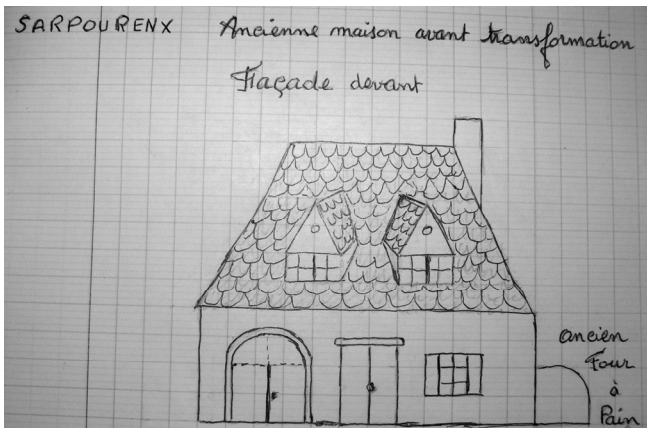 SARPOURENX Ancienne maison avant transformation
Façade devant
ancien
Four
à
Pain